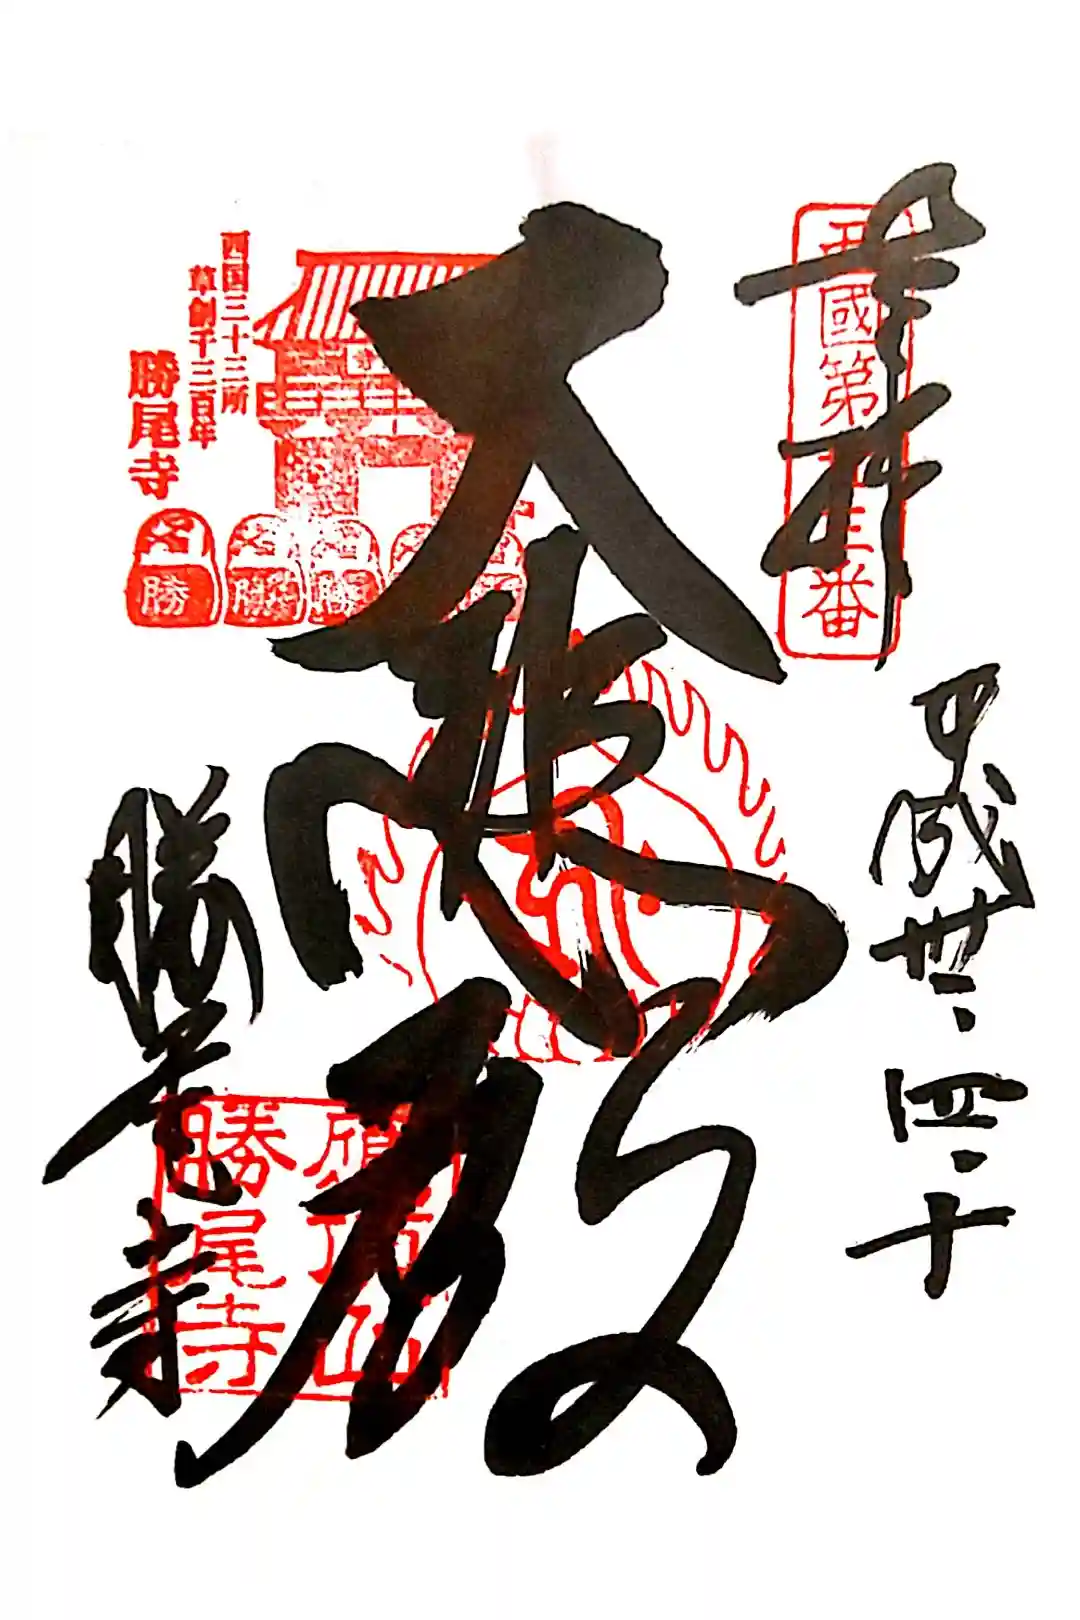 奉拝
西國第廿三番
平成卅、四、十
大悲殿
西国三十三所
草創千三百年
勝尾寺
勝
勝
勝
勝尾寺
應頂山
勝尾寺